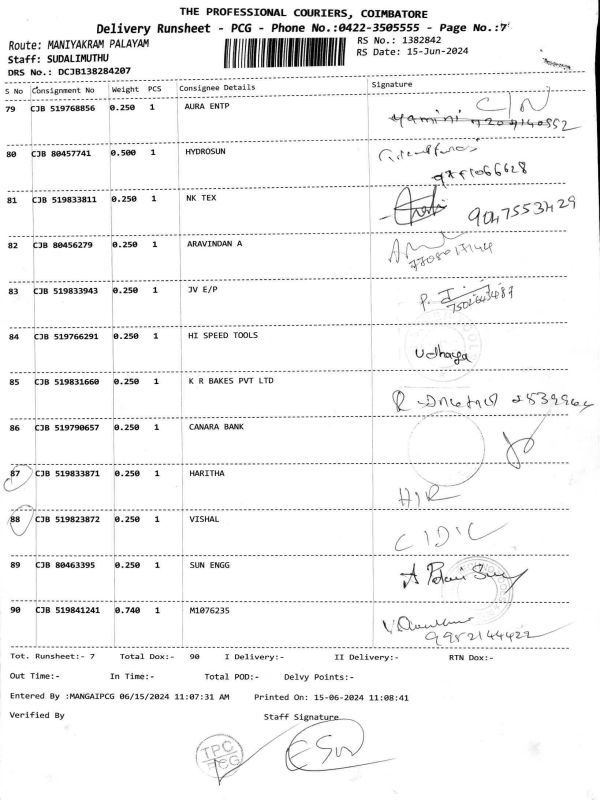 THE PROFESSIONAL COURIERS, COIMBATORE
Delivery Runsheet - PCG - Phone No.:0422-3505555 - Page No.:7
Route: MANIYAKRAM PALAYAM RS No.: 1382842
Staff: SUDALIMUTHU RS Date: 15-Jun-2024
DRS No.: DCJB138284207
S No Consignment No Weight PCS Consignee Details Signature
79 CJB 519768856 0.250 1 AURA ENTP
Yamini
80 CJB 80457741 0.500 1 HYDROSUN
81 CJB 519833811 0.250 1 NK TEX 9047553429
82 CJB 80456279 0.250 1 ARAVINDAN A
7708017144
83 CJB 519833943 0.250 1 JV E/P
84 CJB 519766291 0.250 1 HI SPEED TOOLS
Udhaya
85 CJB 519831660 0.250 1 K R BAKES PVT LTD
86 CJB 519790657 0.250 1 CANARA BANK
87 CJB 519833871 0.250 1 HARITHA
88 CJB 519823872 0.250 1 VISHAL
89 CJB 80463395 0.250 1 SUN ENGG
90 CJB 519841241 0.740 1 M1076235
9952144422
Tot. Runsheet:- 7 Total Dox:- 90 I Delivery:- II Delivery:- RTN Dox:-
Out Time:- In Time:- Total POD:- Delvy Points:-
Entered By :MANGAIPCG 06/15/2024 11:07:31 AM Printed On: 15-06-2024 11:08:41
Verified By Staff Signature
TPC
PCG